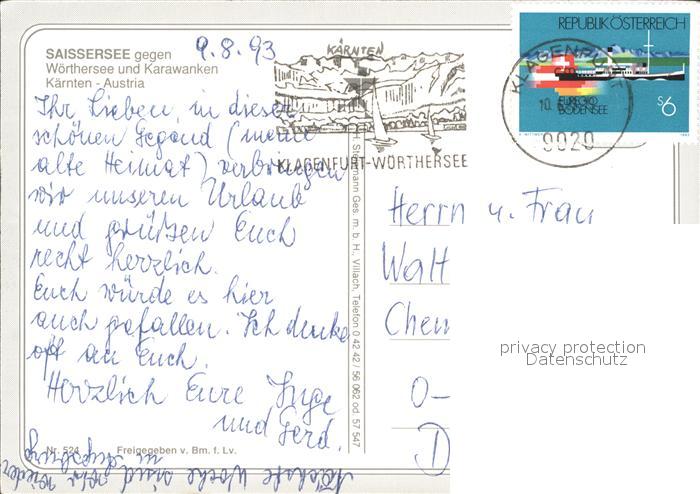 SAISSERSEE gegen
Wörthersee und Karawanken
Kärnten - Austria
9.8.93
Ihr Lieben, in dieser
schönen Gegend (meine
alte Heimat) verbringen
wir unseren Urlaub
und grüßen Euch
recht herzlich.
Euch würde es hier
auch gefallen. Ich denke
oft an Euch.
Herzlich Eure Inge
und Gerd.
Nr. 524 Freigegeben v. Bm. f. Lv.
Nächste Woche sind wir wieder
in Augsburg
KÄRNTEN
KLAGENFURT-WÖRTHERSEE
Ges. m. b. H., Villach, Telefon 0 42 42 / 56 062 od. 57 547
REPUBLIK ÖSTERREICH
EUREGIO
BODENSEE
S6
KLAGENFURT
9020
Herrn u. Frau
Walt
Chem
O-
D
privacy protection
Datenschutz